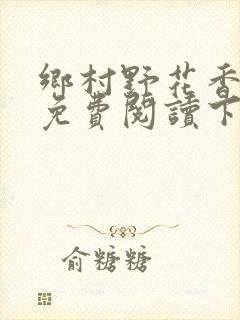 鄉村野花香
免費閱讀下
俞糖糖